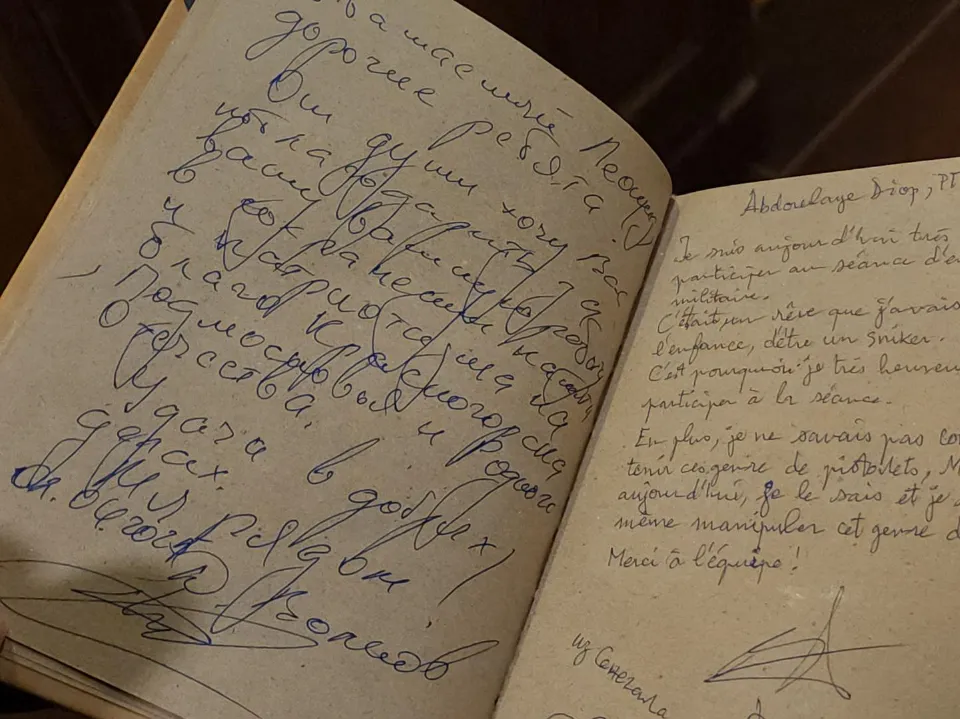 дорогие ребята
От души хочу вас
поблагодарить за
вашу
в сохранении
и патриотизма на
благо Красногорска
Подмосковья и Родного
Отечества.
Удачи в добрых
делах.
Мы рядом
Abdoulaye Diop,
Je suis aujourd'hui très
participer au séance d'en
militaire.
C'était un rêve que j'avais
l'enfance, d'être un Sniker.
C'est pourquoi je très heureu
participer à la séance.
En plus, je ne savais pas co
tenir ces genre de pistolets, M
aujourd'hui, je le sais et je
même manipuler cet genre d
Merci à l'équipe !
из Сенегала